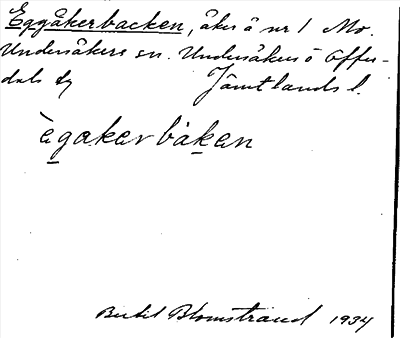 Eggåkerbacken, åker å nr 1 Mo.
Undersåkers sn. Undersåkers o Offer-
dals tg Jämtlands l.
ègakerbàken
Bertil Blomstrand 1934